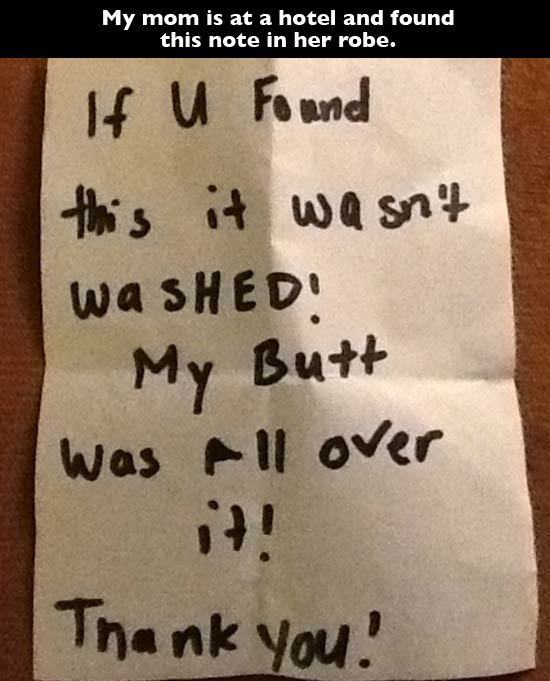 My mom is at a hotel and found
this note in her robe.
If U Found
this it wasn't
WaSHED!
My Butt
was All over
it!
Thank you!